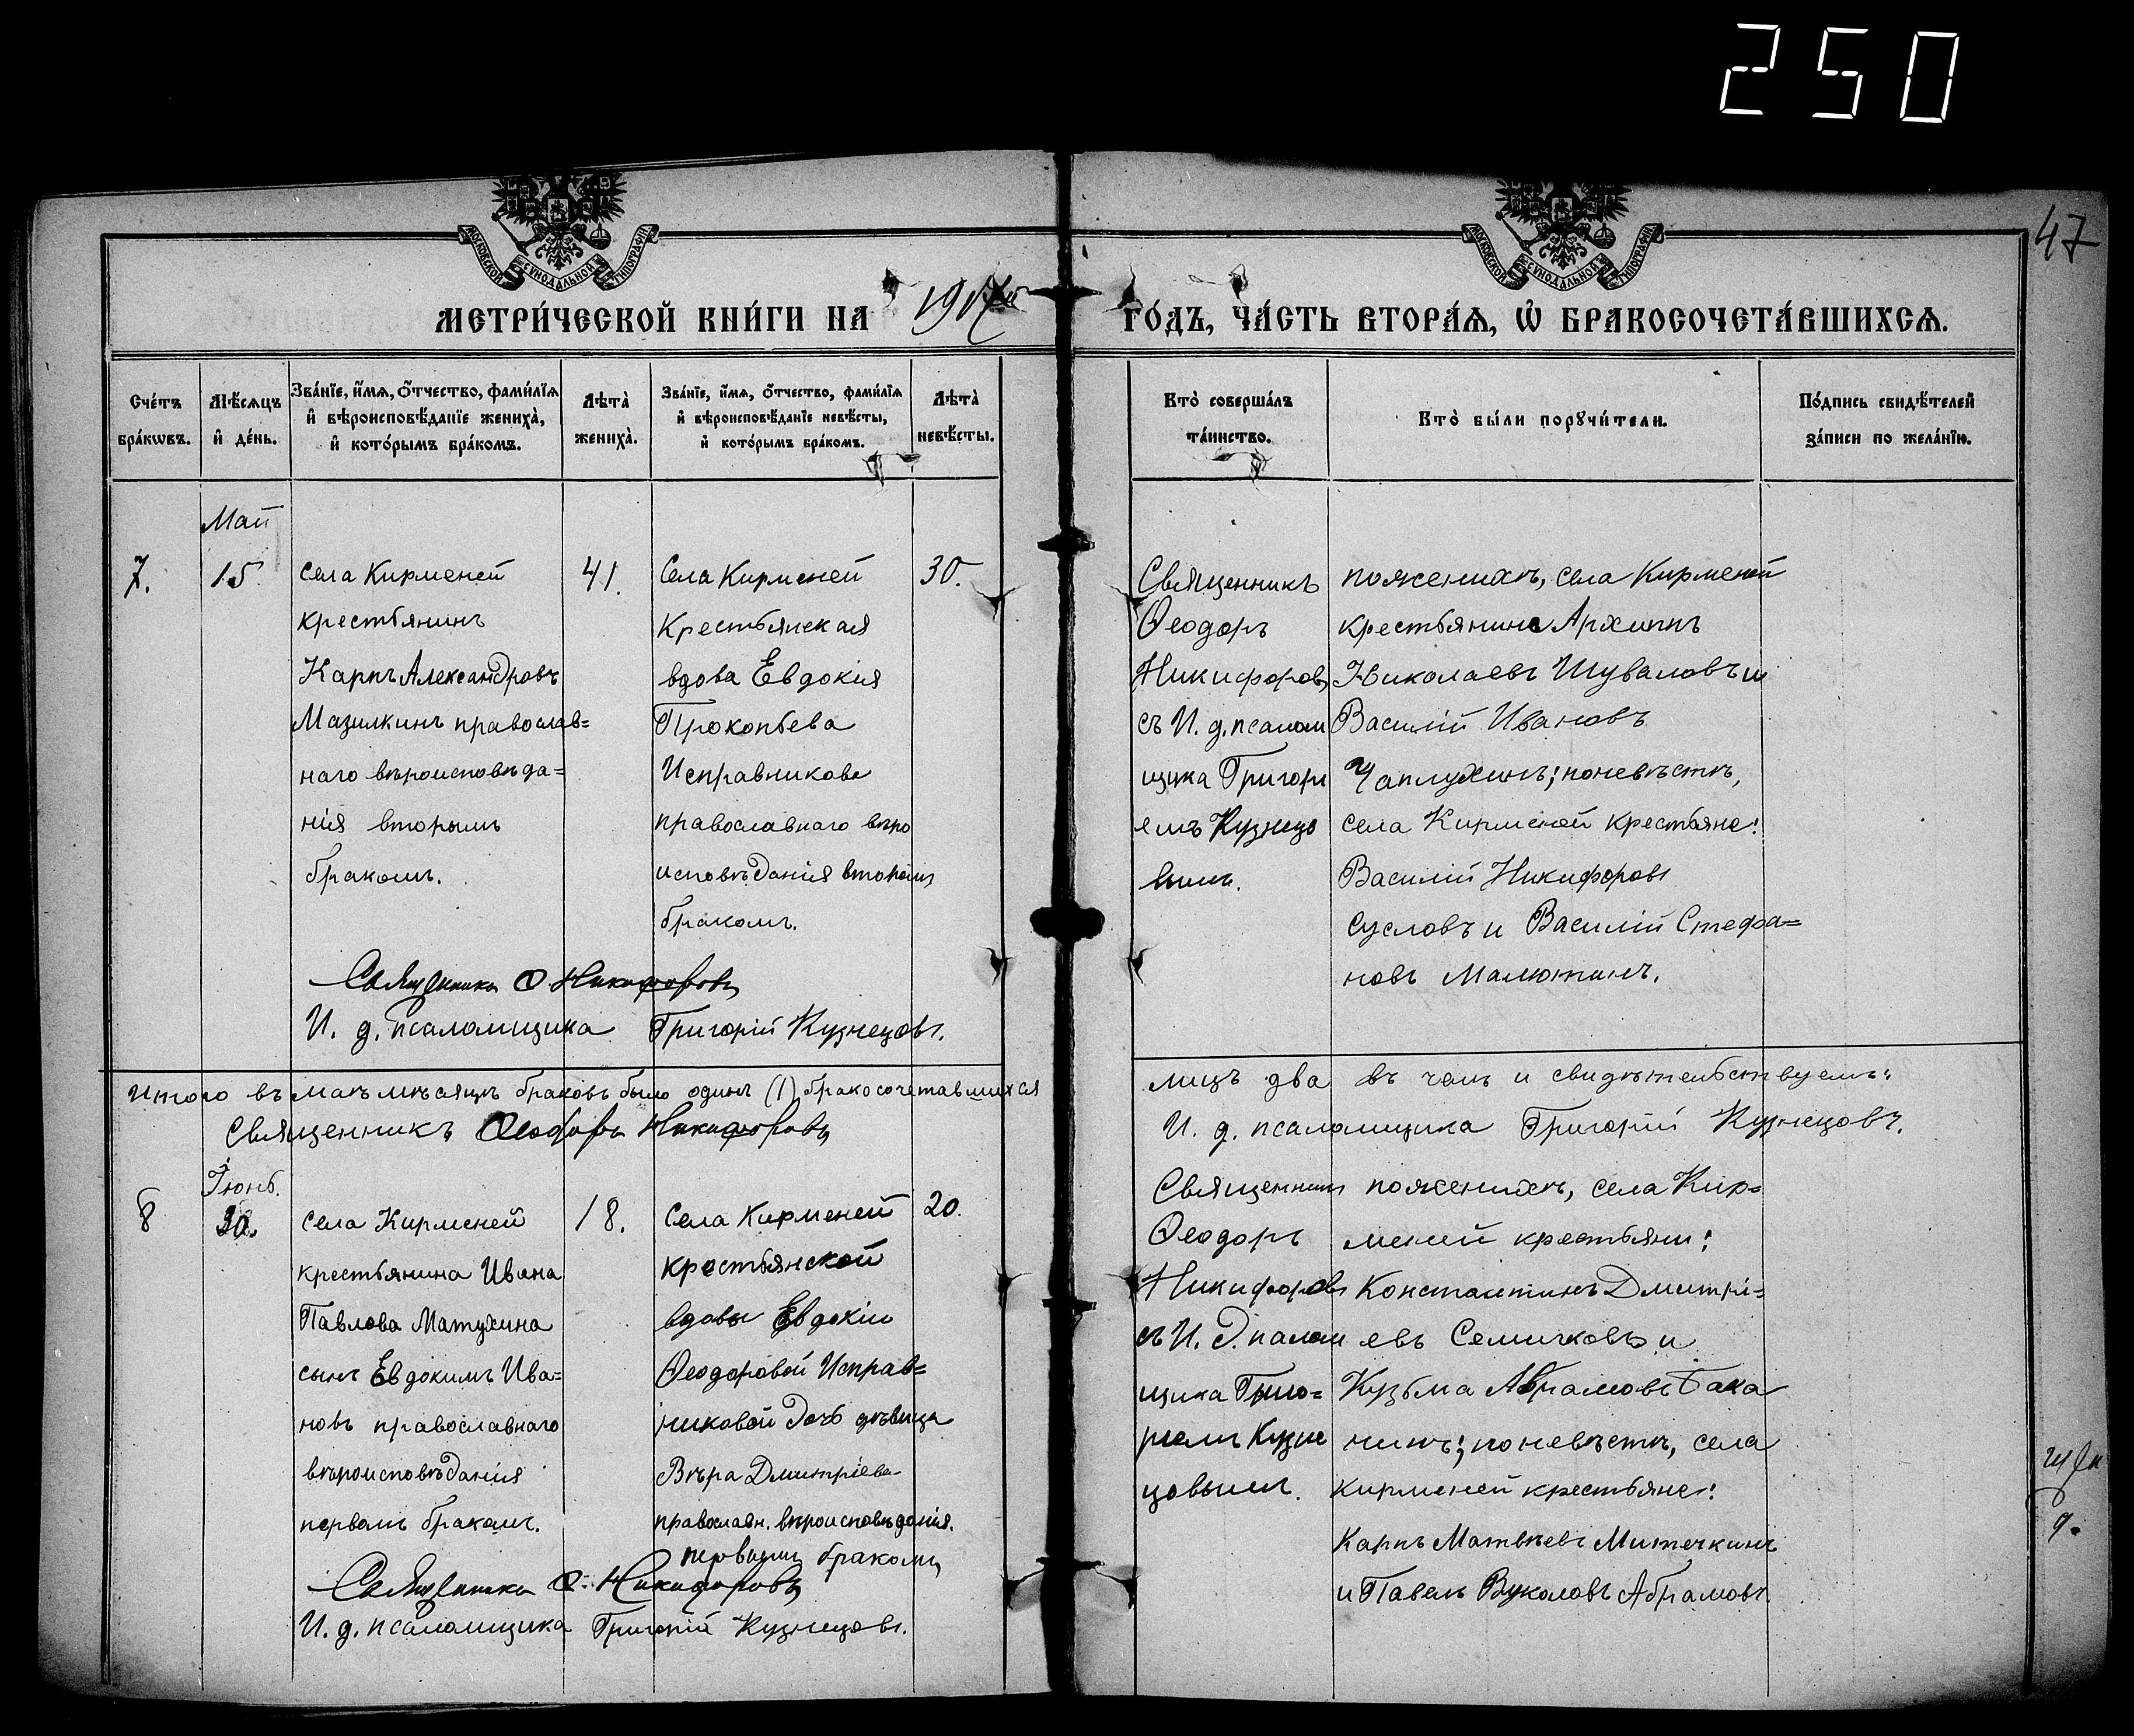 250
47
МОСКОВСКОЙ СѴНОДАЛЬНОЙ ТИПОГРАФІИ
МОСКОВСКОЙ СѴНОДАЛЬНОЙ ТИПОГРАФІИ
МЕТРИ́ЧЕСКОЙ КНИ́ГИ НА 1917й ГО́ДЪ, ЧА́СТЬ ВТОРА́Ѧ, Ѡ҆ БРАКОСОЧЕТА́ВШИХСѦ.
Сче́тъ бра́кωвъ.
Мѣ́сѧцъ и҆ де́нь.
Зва́нїе, и҆́мѧ, о҆́тчество, фами́лїѧ
и҆ вѣроисповѣ́данїе жениха̀,
и҆ кото́рымъ бра́комъ.
Лѣта̀ жениха̀.
Зва́нїе, и҆́мѧ, о҆́тчество, фами́лїѧ
и҆ вѣроисповѣ́данїе невѣ́сты,
и҆ кото́рымъ бра́комъ.
Лѣта̀ невѣ́сты.
Кто̀ соверша́лъ та́инство.
Кто̀ бы́ли порꙋчи́тели.
По́дпись свидѣ́телей за́писи по жела́нїю.
Май
7.
15.
Села Кирменей
крестьянинъ
Карпъ Александровъ
Мазилкинъ православ=
наго вѣроисповѣда=
нія вторымъ
бракомъ.
41.
Села Кирменей
Крестьянская
вдова Евдокія
Прокопьева
Исправникова
православнаго вѣро
исповѣданія вторымъ
бракомъ.
30.
Священникъ
Ѳеодоръ
Никифоровъ
съ И. д. псалом
щика Григорі
емъ Кузнецо
вымъ.
по женихѣ, села Кирменей
крестьянине Архиппъ
Николаевъ Шуваловъ и
Василій Ивановъ
Чаплухинъ; по невѣстѣ,
села Кирменей крестьяне:
Василій Никифоровъ
Сусловъ и Василій Стефа=
новъ Малютинъ.
Священникъ Ѳ. Никифоровъ
И. д. псаломщика Григорій Кузнецовъ.
Итого въ маѣ мѣсяцѣ браковъ было одинъ (1) бракосочетавшихся лицъ два въ чемъ и свидѣтельствуемъ:
Священникъ Ѳеодоръ Никифоровъ
И. д. псаломщика Григорій Кузнецовъ.
Іюнь.
8
30.
села Кирменей
крестьянина Ивана
Павлова Матухина
сынъ Евдокимъ Ива=
новъ православнаго
вѣроисповѣданія
первымъ бракомъ.
18.
Села Кирменей
крестьянской
вдовы Евдокіи
Ѳеодоровой Исправ=
никовой дочь дѣвица
Вѣра Дмитріева
православн. вѣроисповѣданія.
первымъ бракомъ
20.
Священникъ
Ѳеодоръ
Никифоровъ
съ И. д. псалом
щика Григо=
ріемъ Кузне
цовымъ.
по женихѣ, села Кир=
меней крестьяни:
Константинъ Дмитрі=
евъ Семичковъ и
Кузьма Абрамовъ Бака
нинъ; по невѣстѣ, села
Кирменей крестьяне:
Карпъ Матвѣевъ Митечкинъ
и Павелъ Вуколовъ Абрамовъ.
Священникъ Ѳ. Никифоровъ
И. д. псаломщика Григорій Кузнецовъ.